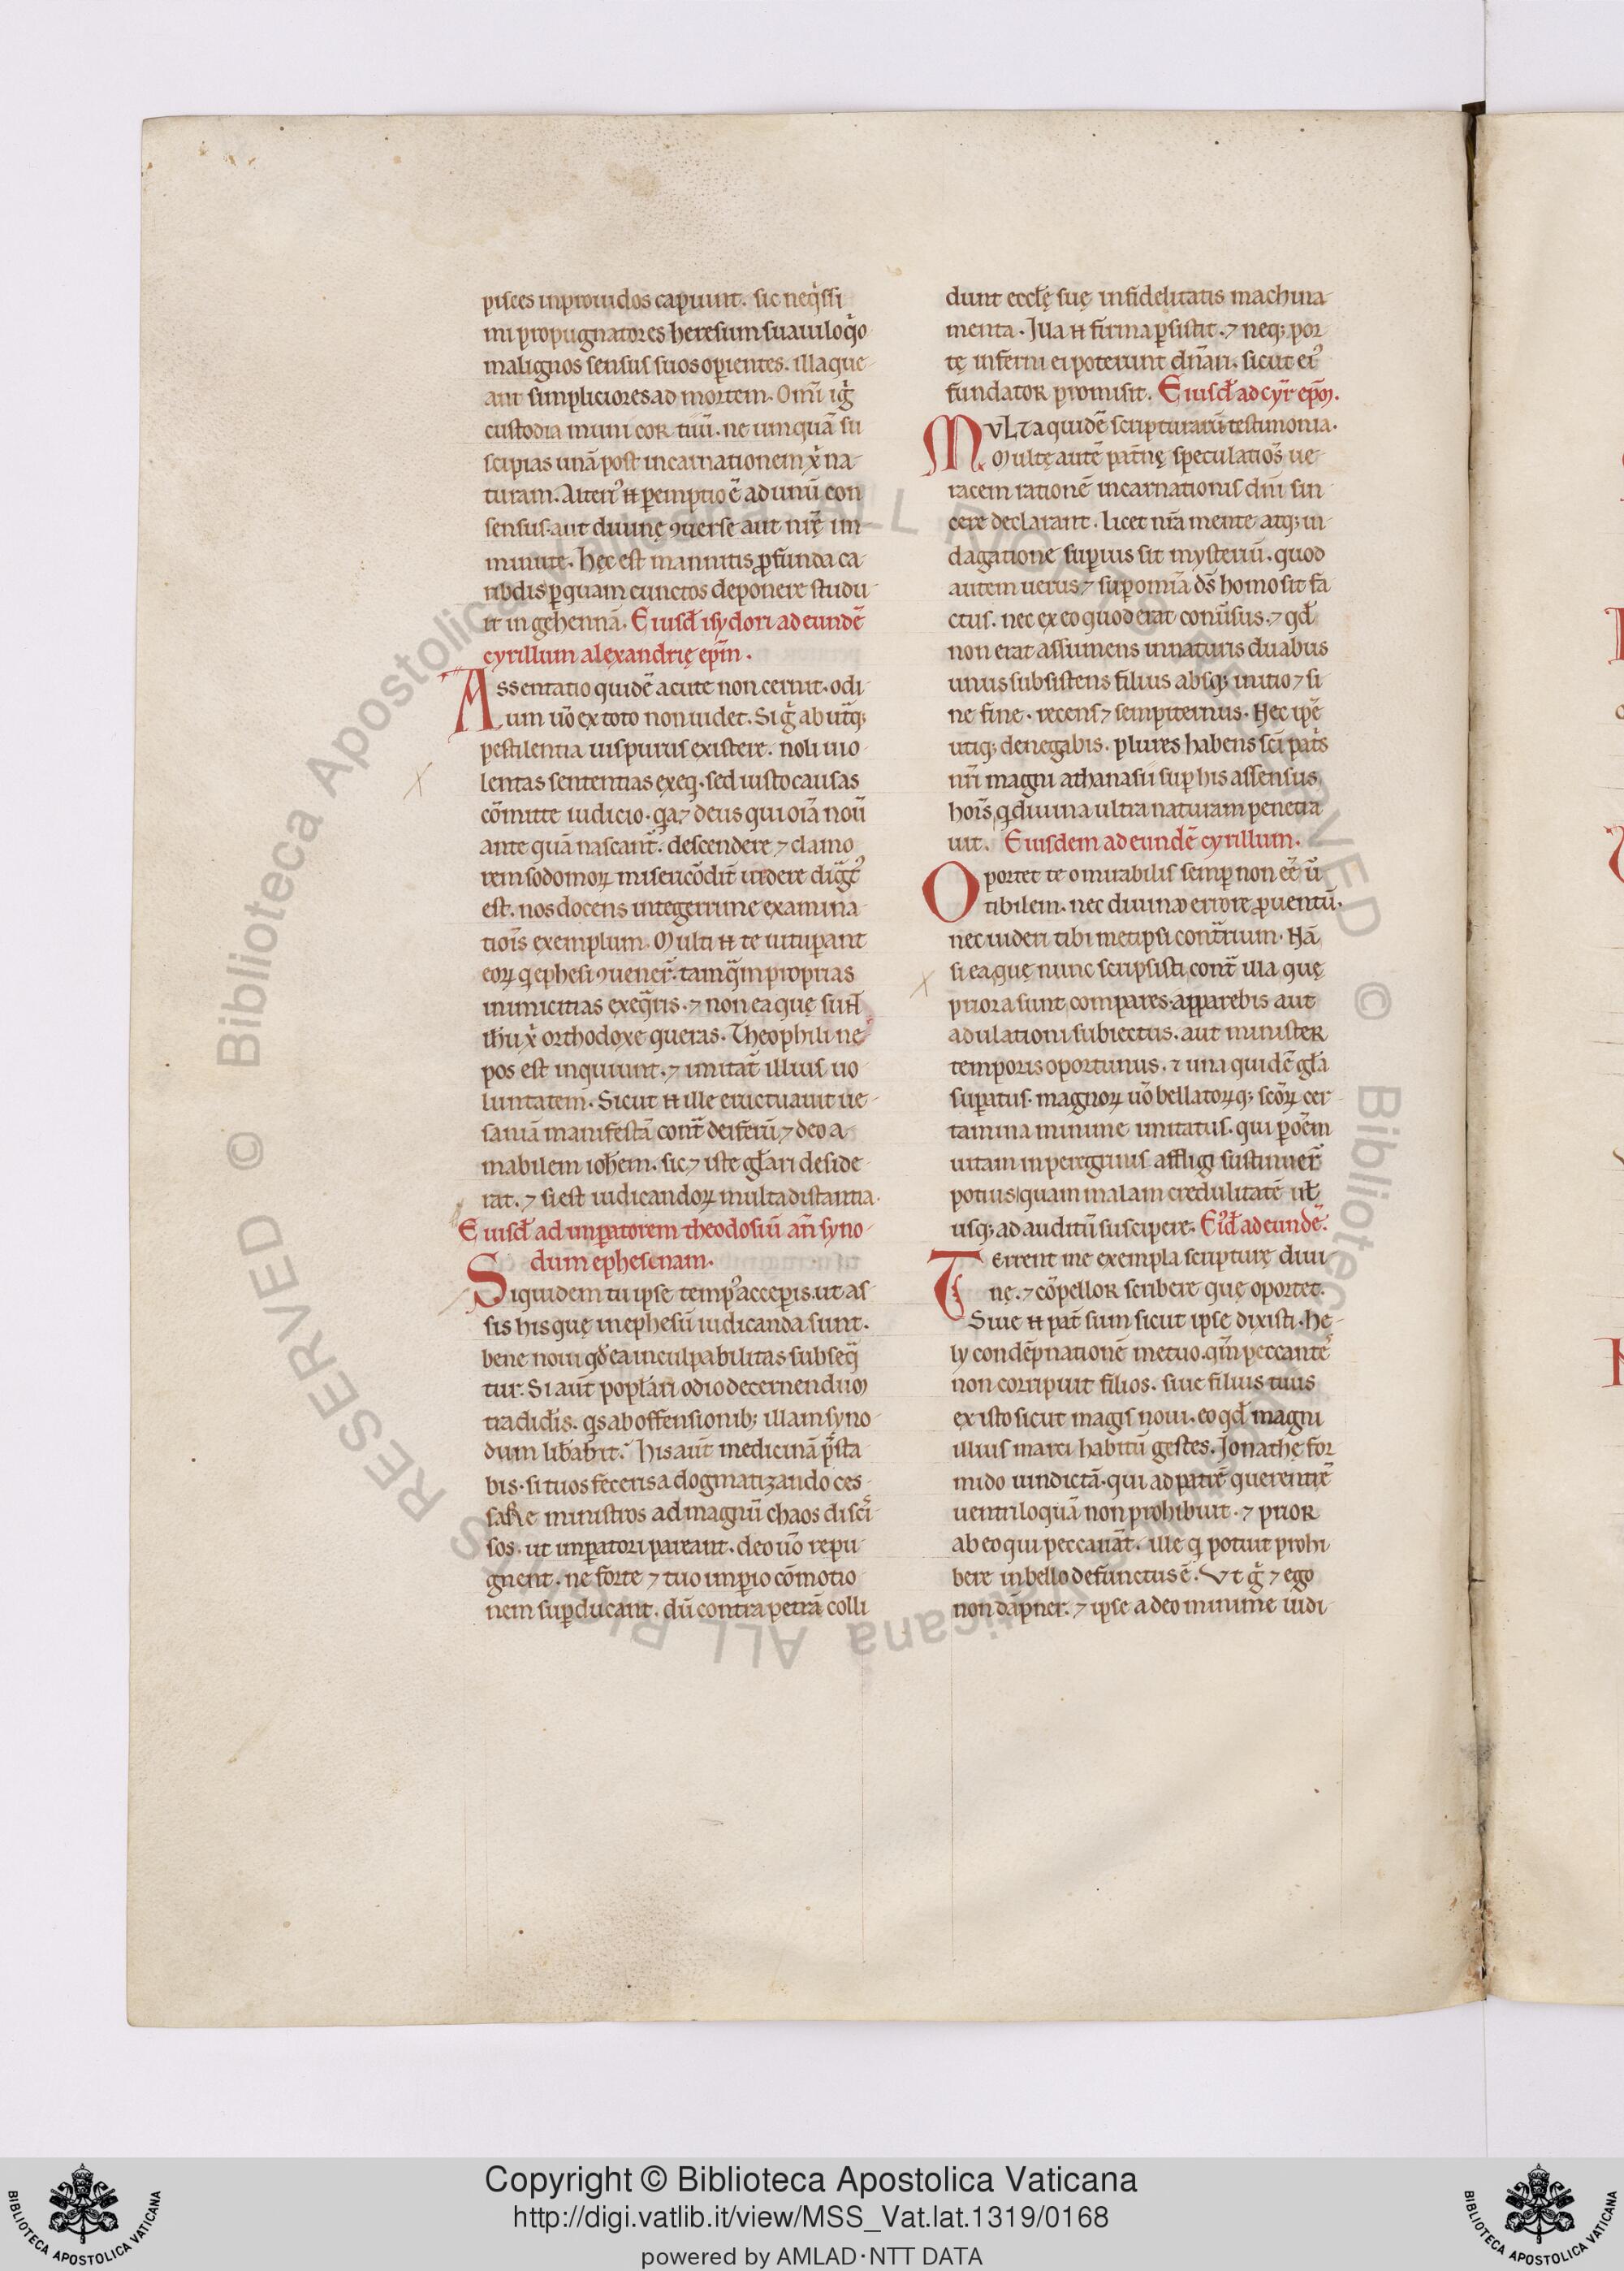 pisces inprouidos capiunt. sic neq̇ssi
mi propugnatores heresum suauiloq̇o
malignos sensus suos opientes. illaque
ant simpliciores ad mortem. Omī iḡ
custodia muni cor tuū. ne umquā su
scipias unā post incarnationem x̄ na
turam. Alteri᾽ et pemptio ē ad unū con
sensus. aut diuinę ꝯuerse aut nr̄ę im
minute. hęc est mannitis ꝓfunda ca
ribdis ꝑquam cunctos deponere studu
it in gehennā. Eiusd̄ isydori ad eundē
cyrillum alexandrię epm̄.
Assentatio quidē acute non cernit. odi
um ūo ex toto non uidet. Si ḡ ab utͣq;
pestilentia uis purus existere. noli uio
lentas sententias exeq̇. sed iusto causas
cōmitte iudicio. qͣa ⁊ deus qui oīa nouͭ
ante quā nascantͬ. descendere ⁊ clamo
rem sodomoꝝ misericōdit̄ uidere digͣtͫ᾽
est. nos docens integerrime examina
tiōis exemplum. Multi et te uitupant
eoꝝ q̇ ephesi ꝯuener̄. tamqͣm proprias
inimicitias exeqͣris. ⁊ non ea quę sunt
ih̄u x̄ orthodoxe queras. Theophili ne
pos est inquiunt. ⁊ imitat̄ illius uo
luntatem. Sicut et ille eructuauit ue
saniā manifestā cont̄ deiferū ⁊ deo a
mabilem ioh̄em. sic ⁊ iste gl̄ari deside
rat. ⁊ si est iudicandoꝝ multa distantia.
Eiusd̄ ad impatorem theodosiū an̄ syno
dum ephesenam.
Siquidem tu ipse temp᾽ acceperis. ut as
sis his quę in ephesū iudicanda sunt.
bene noui qd̄ ea inculpabilitas subseqͣ
tur. Si aut̄ popl̄ari odio decernendum
tradid̄is. qͥs ab offensionib; illam syno
dum lib̄abit. His aut̄ medicinā p̄sta
bis. si tuos feceris a dogmatizando ces
saRe ministros ad magnū chaos disci
sos. ut impatori pareant. deo ūo repu
gnent. ne forte ⁊ tuo impio cōmotio
nem supducant. dū contra petrā colli
dunt eccl̄ę suę infidelitatis machina
menta. Illa et firma ꝑsistit. ⁊ neq; por
tę inferni ei poterunt dn̄ari. sicut ei᾽
fundator promisit. Eiusd̄ ad cyr̄ epm̄.
MVLTa quidē scripturarū testimonia.
Multę autē patͥnę speculatiōs ue
racem rationē incarnationis dn̄i sin
cere declarant. Licet nr̄a mente atq; in
dagatione supius sit mysteriū. quod
autem uerus ⁊ sup omīa ds̄ homo sit fa
ctus. nec ex eo quod erat conūsus. ⁊ qd̄
non erat assumens in naturis duabus
unus subsistens filius absq; initio ⁊ si
ne fine. recens ⁊ sempiternus. Hec ipē
utiq; denegabis. plures habens sc̄i patͥs
nr̄i magni athanasii sup his assensus
hoīs q̇ diuina ultra naturam penetra
uit. Eiusdem ad eundē cyrillum.
Oportet te o mirabilis semp non eē ūͭ
tibilem. nec diuina errore ꝓuentū.
nec uideri tibimetipsi contͣrium. Nā
si ea quę nunc scripsisti contͣ illa quę
priora sunt compares. apparebis aut
adulationi subiectus. aut minister
temporis oportunus. ⁊ una quidē gl̄a
supatus. magnoꝝ ūo bellatoꝝq; sc̄oꝝ cer
tamina minime imitatus. qui ꝑ oēm
uitam in peregrinis affligi sustinuer̄
potius quam malam credulitatē ul̄
usq; ad auditū suscipere. Eid̄ ad eundē.
Terrent me exempla scripturę diui
nę. ⁊ cōpelloR scribere quę oportet.
Siue et pat̄ sum sicut ipse dixisti. he
ly condēpnationē metuo. qm̄ peccante᾽
non corripuit filios. siue filius tuus
ex isto sicut magis noui. eo qd̄ magni
illius marci habitū gestes. Jonathę for
mido uindictā. qui ad patrē querentē
uentriloquā non prohibuit. ⁊ prior
ab eo qui peccauāt. ille q̇ potuit prohi
bere in bello defunctus ē. Vt ḡ ⁊ ego
non dāpner. ⁊ ipse a deo minime iudi
Copyright © Biblioteca Apostolica Vaticana
http://digi.vatlib.it/view/MSS_Vat.lat.1319/0168
powered by AMLAD·NTT DATA